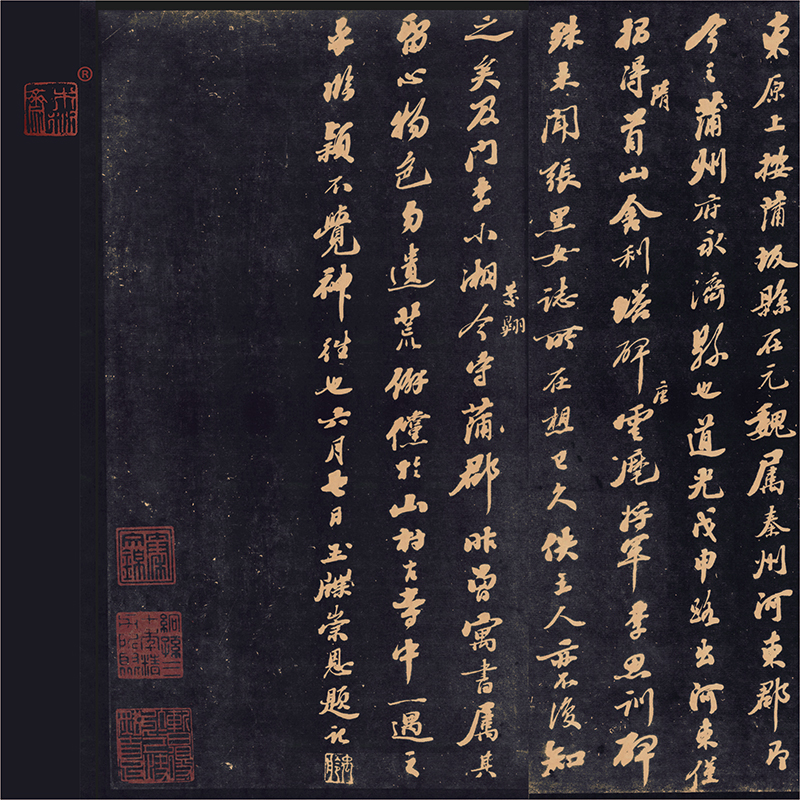 東原上按蒲坂縣在元魏屬秦州河東郡即
今之蒲州府永濟縣也道光戊申路出河東僅
招得隋首山舍利塔碑唐雲麾將軍李思訓碑
殊未聞張黑女誌所在想已久佚土人亦不復知
之矣及門李小湘今守蒲郡昨曾寓書屬其
留心物色勿遺荒僻儻於山村古寺中一遇之
手臨穎不覺神往也六月七日玉牒崇恩題記
®